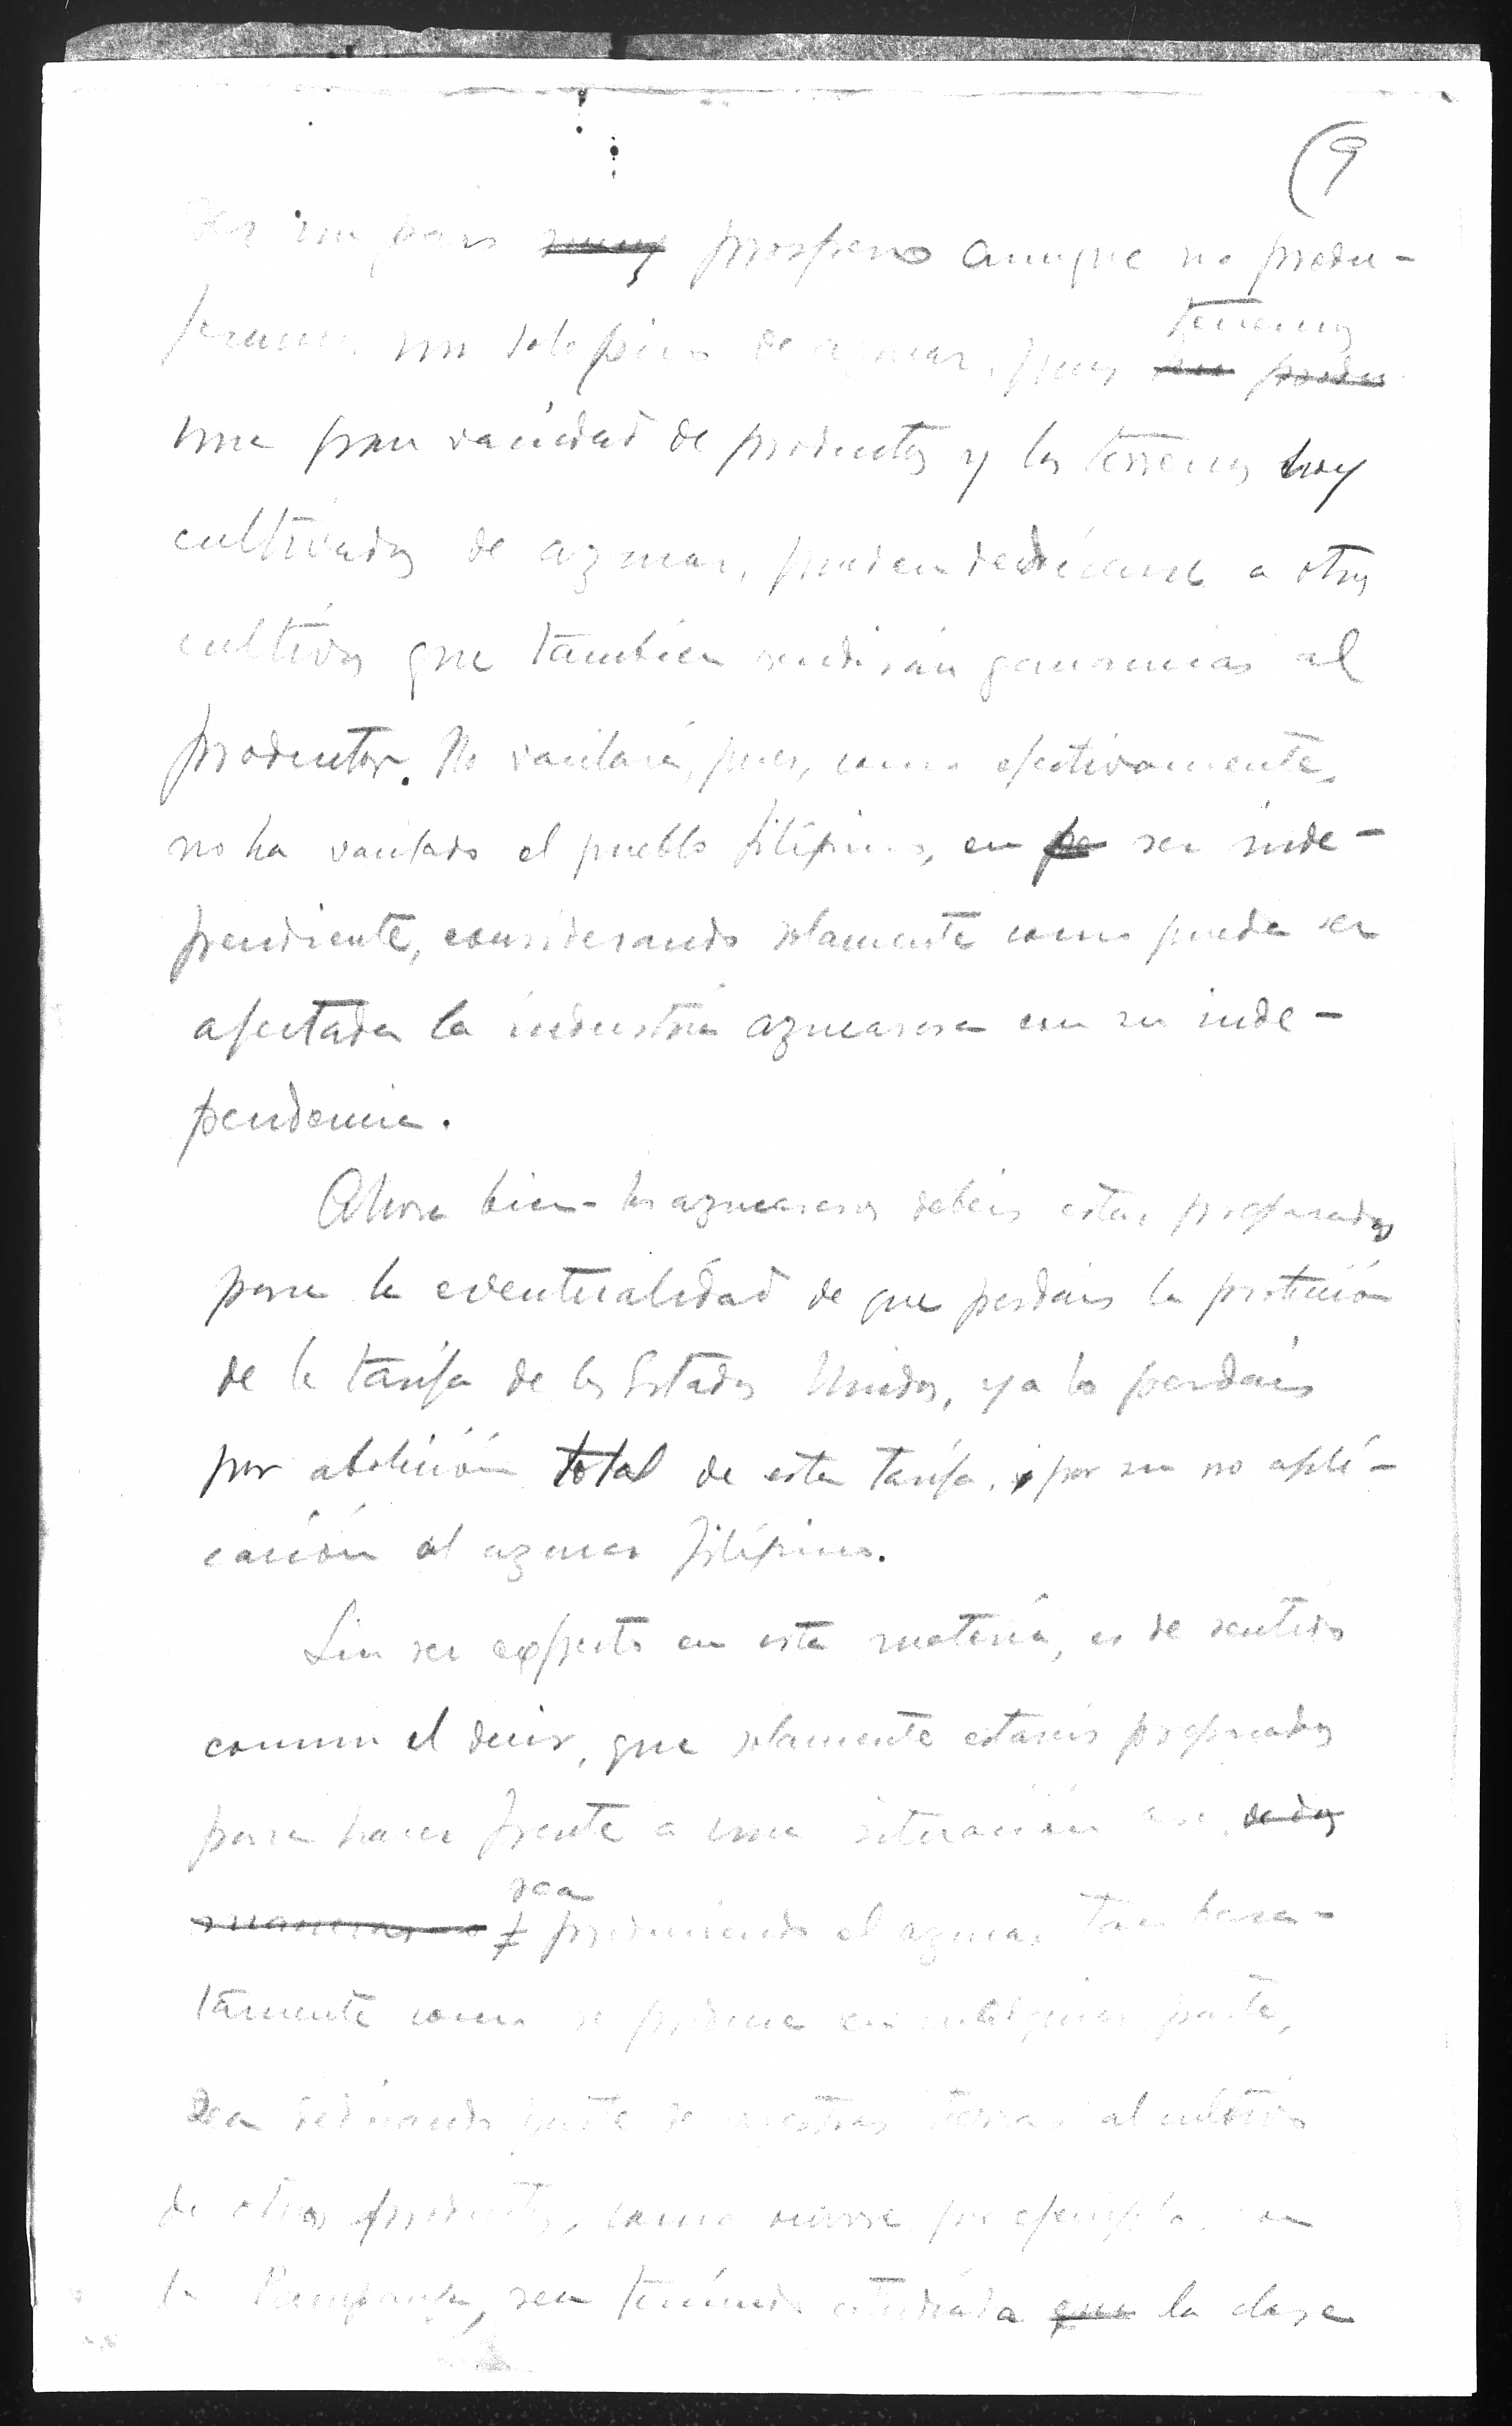 (9
ser un pais muy prospero aunque no produ-
jeramos un solo pico de azucar, pues
tenemos
una gran variedad de productos y los terrenos hoy
cultivados de azucar, pueden dedicarse a otros
cultivos que tambien rendirán ganancias al
productor. No vacilará, pues, como efectivamente,
no ha vacilado el pueblo filipino, en pe ser inde-
pendiente, considerando solamente como puede ser
afectada la industria azucarera con su inde-
pendencia.
Ahora bien - los azucareros debeis estar preparados
para la eventualidad de que perdais la protección
de la tarifa de los Estados Unidos, ya la perdais
por abolición total de esta tarifa, por su no apli-
cación al azucar filipino.
Sin ser experto en esta materia, es de sentido
comun el decir, que solamente estareis preparados
para hacer frente a una situación asi, de dos
maneras
sea
produciendo el azucar tan bara-
tamente como se produce en cualquier parte,
sea dedicando parte de vuestras tierras al cultivo
de otros productos, como ocurre por ejemplo, con
la Pampanga, sea teniendo estudiada que la clase